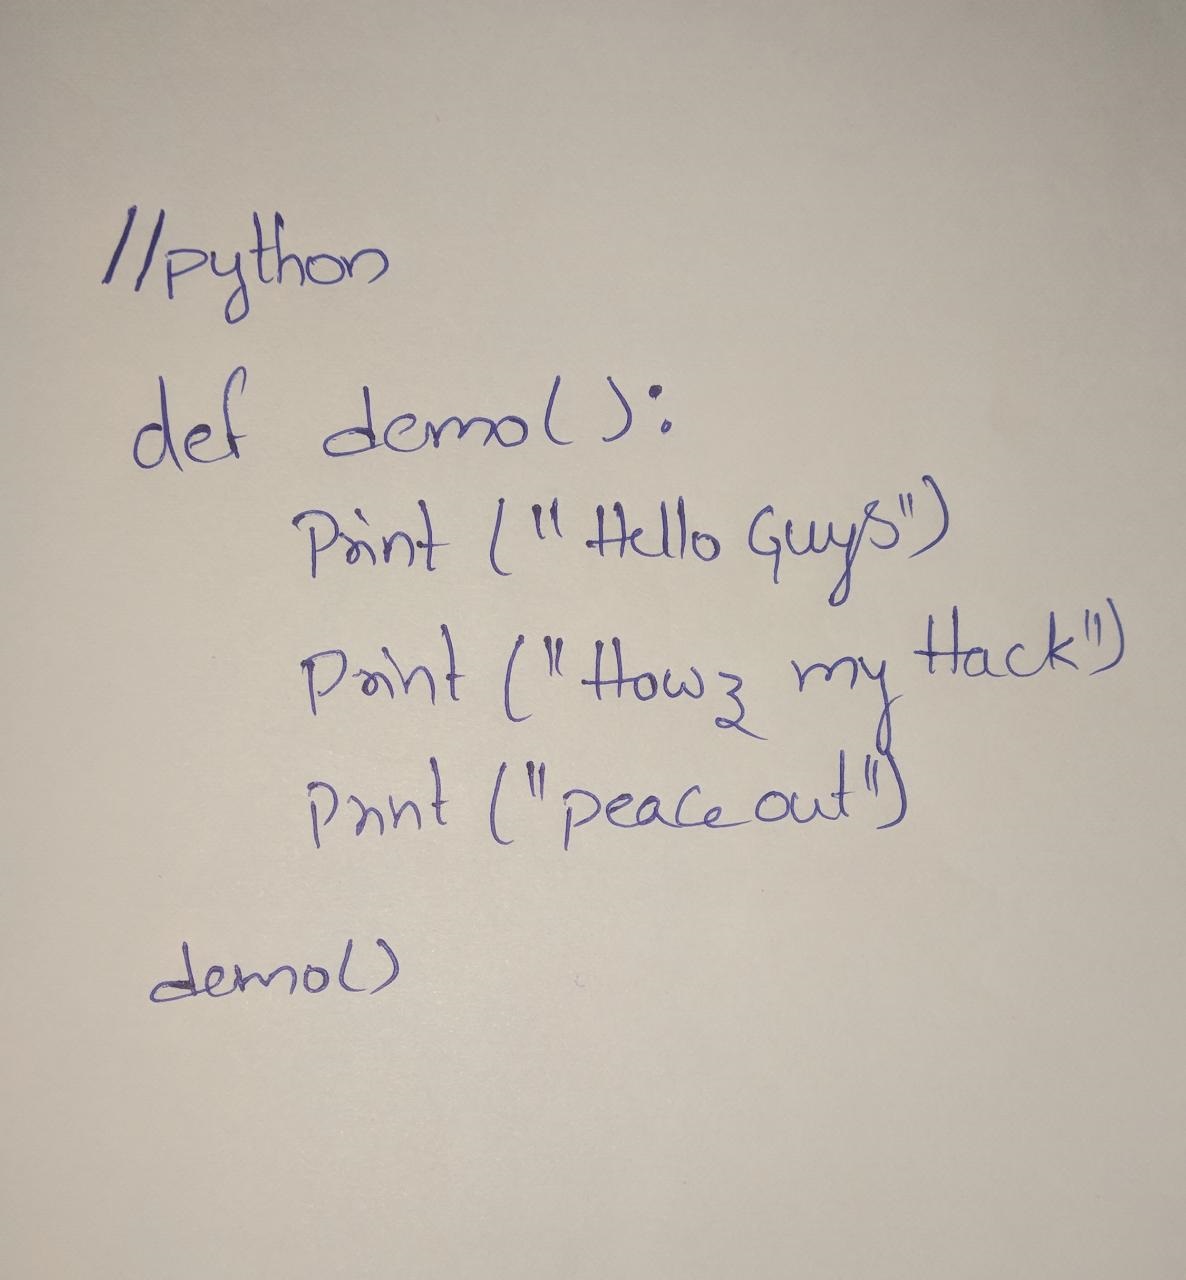 //python
def demo():
Print ("Hello Guys")
print ("Howz my Hack")
print ("peace out")
demo()